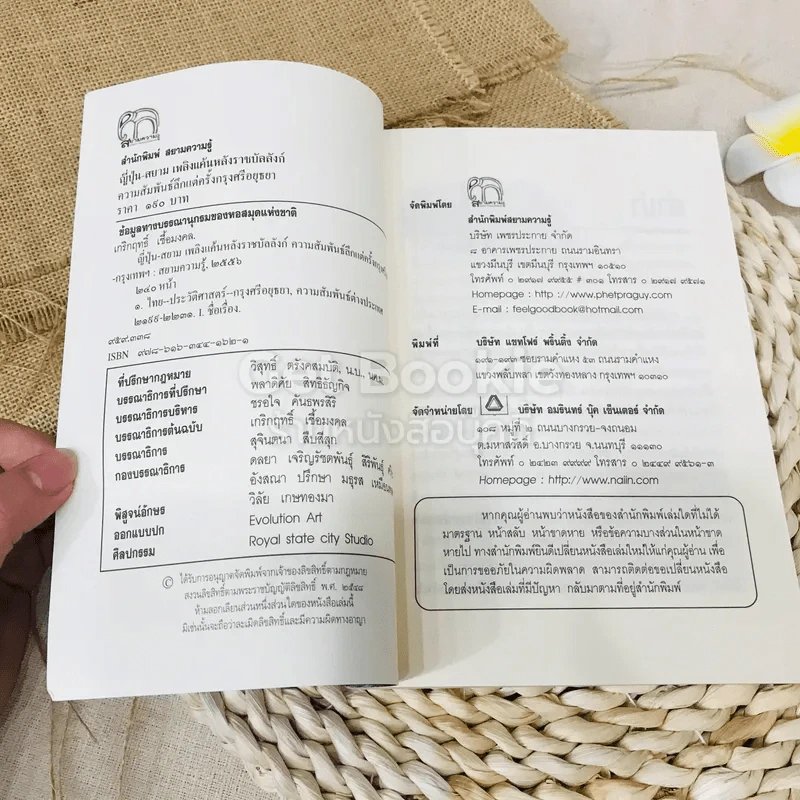 สยามความรู้
สำนักพิมพ์ สยามความรู้
ญี่ปุ่น-สยาม เพลิงแค้นหลังราชบัลลังก์
ความสัมพันธ์ลึกแต่ครั้งกรุงศรีอยุธยา
ราคา ๑๙๐ บาท
ข้อมูลทางบรรณานุกรมของหอสมุดแห่งชาติ
เกริกฤทธิ์ เชื้อมงคล.
ญี่ปุ่น-สยาม เพลิงแค้นหลังราชบัลลังก์ ความสัมพันธ์ลึกแต่ครั้งกรุงศรีอยุธยา.
-กรุงเทพฯ : สยามความรู้, ๒๕๕๖
๒๔๐ หน้า
๑. ไทย-ประวัติศาสตร์-กรุงศรีอยุธยา, ความสัมพันธ์ต่างประเทศ
๒๑๙๙-๒๒๓๑. I. ชื่อเรื่อง.
๙๕๙.๓๓๘
ISBN ๙๗๘-๖๑๖-๓๔๔-๑๖๒-๑
ที่ปรึกษากฎหมาย วิสุทธิ์ ตรังคสมบัติ, น.บ., นคม.
บรรณาธิการที่ปรึกษา พลาดิศัย สิทธิธัญกิจ
บรรณาธิการบริหาร ชรอใจ คันธพรสิริ
บรรณาธิการต้นฉบับ เกริกฤทธิ์ เชื้อมงคล
บรรณาธิการ สุจินตนา สืบสี่สุก
กองบรรณาธิการ ดลยา เจริญรัชตพันธุ์ สิริพันธุ์
อังสณา ปรึกษา มธุรส
พิสูจน์อักษร วิลัย เกษทองมา
ออกแบบปก Evolution Art
ศิลปกรรม Royal state city Studio
© ได้รับการอนุญาตจัดพิมพ์จากเจ้าของลิขสิทธิ์ตามกฎหมาย
สงวนลิขสิทธิ์ตามพระราชบัญญัติลิขสิทธิ์ พ.ศ. ๒๕๔๘
ห้ามลอกเลียนส่วนหนึ่งส่วนใดของหนังสือเล่มนี้
มิเช่นนั้นจะถือว่าละเมิดลิขสิทธิ์และมีความผิดทางอาญา
จัดพิมพ์โดย
สยามความรู้
สำนักพิมพ์สยามความรู้
บริษัท เพชรประกาย จำกัด
๘ อาคารเพชรประกาย ถนนรามอินทรา
แขวงมีนบุรี เขตมีนบุรี กรุงเทพฯ ๑๐๕๑๐
โทรศัพท์ ๐ ๒๙๑๗ ๙๕๕๘ # ๓๐๑ โทรสาร ๐ ๒๙๑๗ ๙๕๗๑
Homepage : http ://www.phetpraguy.com
E-mail : feelgoodbook@hotmail.com
พิมพ์ที่ บริษัท แชทโฟร์ พริ้นติ้ง จำกัด
๑๙๑-๑๙๓ ซอยรามคำแหง ๕๓ ถนนรามคำแหง
แขวงพลับพลา เขตวังทองหลาง กรุงเทพฯ ๑๐๓๑๐
จัดจำหน่ายโดย บริษัท อมรินทร์ บุ๊ค เซ็นเตอร์ จำกัด
๑๐๘ หมู่ที่ ๒ ถนนบางกรวย-จงถนอม
ต.มหาสวัสดิ์ อ.บางกรวย จ.นนทบุรี ๑๑๑๓๐
โทรศัพท์ ๐ ๒๔๒๓ ๙๙๙๙ โทรสาร ๐ ๒๔๔๙ ๙๕๖๑-๓
Homepage : http ://www.naiin.com
หากคุณผู้อ่านพบว่าหนังสือของสำนักพิมพ์เล่มใดที่ไม่ได้
มาตรฐาน หน้าสลับ หน้าขาดหาย หรือข้อความบางส่วนในหน้าขาด
หายไป ทางสำนักพิมพ์ยินดีเปลี่ยนหนังสือเล่มใหม่ให้แก่คุณผู้อ่าน เพื่อ
เป็นการขออภัยในความผิดพลาด สามารถติดต่อขอเปลี่ยนหนังสือ
โดยส่งหนังสือเล่มที่มีปัญหา กลับมาตามที่อยู่สำนักพิมพ์